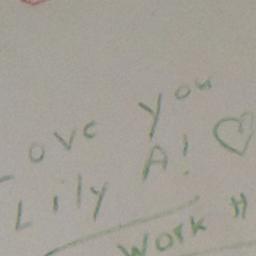 ove you
Lily A!
Work H